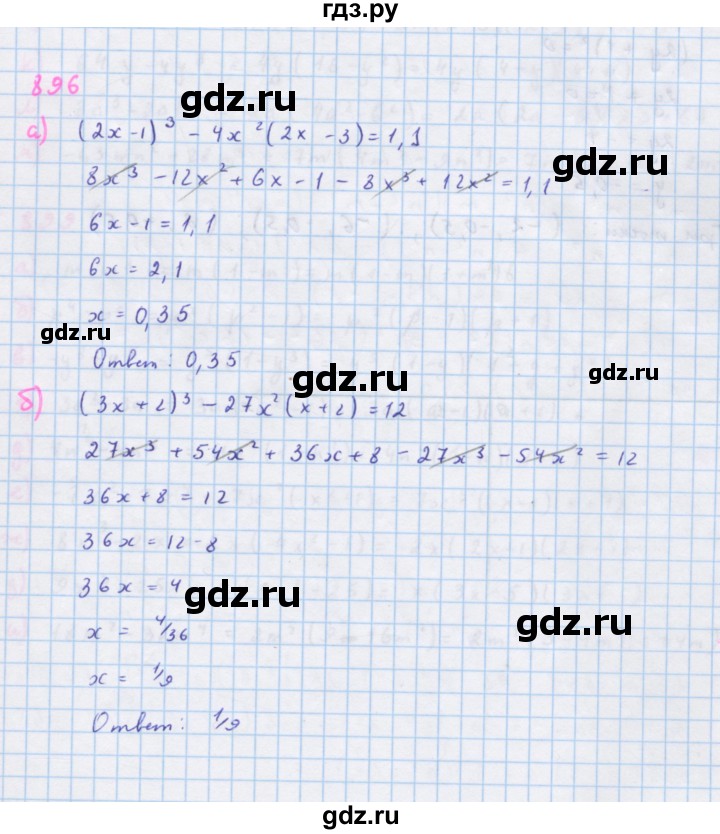 гдз.ру
896
gdz.ru
а) (2x-1)³ - 4x²(2x - 3) = 1,1
gdz.ru
8x³ - 12x² + 6x - 1 - 8x³ + 12x² = 1,1
6x - 1 = 1,1
6x = 2,1
x = 0,35
gdz.ru
Ответ: 0,35
gdz.ru
gdz.ru
б) (3x + 2)³ - 27x²(x + 2) = 12
27x³ + 54x² + 36x + 8 - 27x³ - 54x² = 12
36x + 8 = 12
36x = 12 - 8
36x = 4
gdz.ru
x = 4/36
gdz.ru
x = 1/9
Ответ: 1/9
gdz.ru